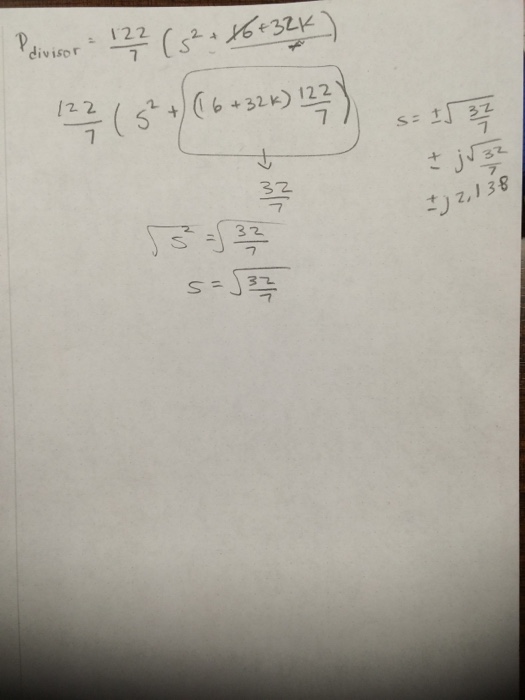 P divisor = 122/7 (s² + 16+32K)
122/7 (s² + (16+32K) 122/7)
↓
32/7
√s² = √32/7
s = √32/7
s = ±√32/7
± j√32/7
± j2,138